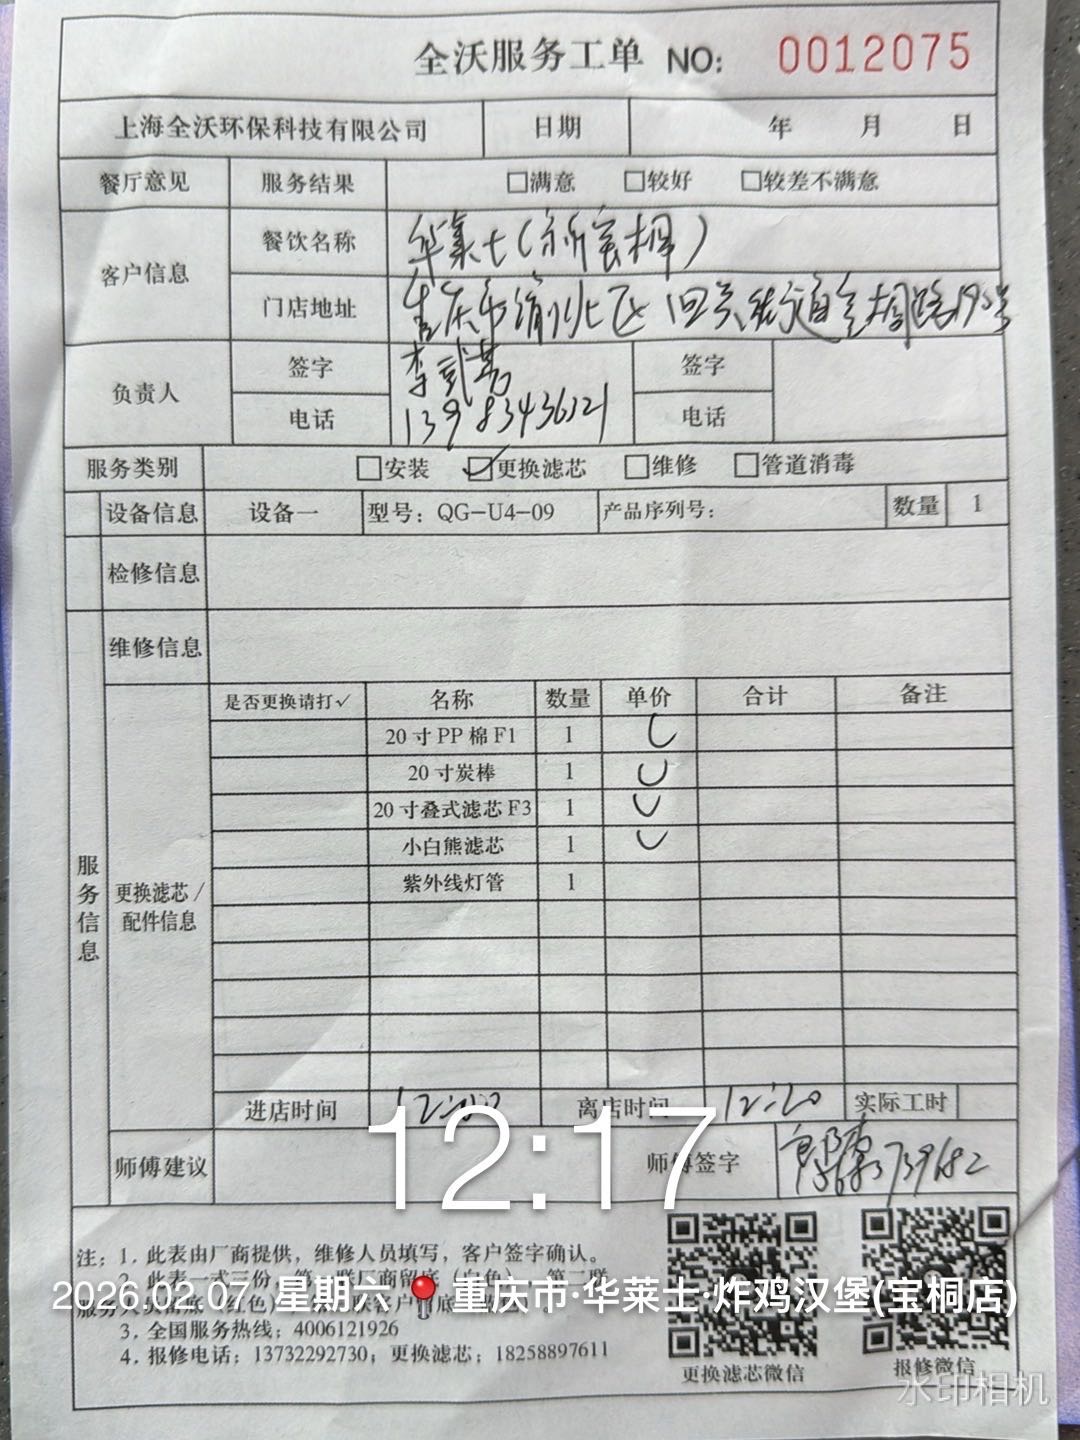 全沃服务工单 NO: 0012075
上海全沃环保科技有限公司 日期 年 月 日
餐厅意见 服务结果 □满意 □较好 □较差不满意
客户信息
餐饮名称 华莱士(新宝桐)
门店地址 重庆市渝北区回兴街道宝桐路192号
负责人
签字 李 签字
电话 13983436121 电话
服务类别 □安装 ☑更换滤芯 □维修 □管道消毒
设备信息 设备一 型号：QG-U4-09 产品序列号： 数量 1
检修信息
维修信息
服务信息
更换滤芯/配件信息
是否更换请打✓ 名称 数量 单价 合计 备注
20寸PP棉F1 1
20寸炭棒 1
20寸叠式滤芯F3 1
小白熊滤芯 1
紫外线灯管 1
进店时间 12:00 离店时间 12:20 实际工时
师傅建议 师傅签字
12:17
注：1. 此表由厂商提供，维修人员填写，客户签字确认。
2. 此表一式三份，第一联厂商留底（白色） 第二联
2026.02.07 星期六 重庆市·华莱士·炸鸡汉堡(宝桐店)
3. 全国服务热线：4006121926
4. 报修电话：13732292730；更换滤芯：18258897611
更换滤芯微信 报修微信
水印相机